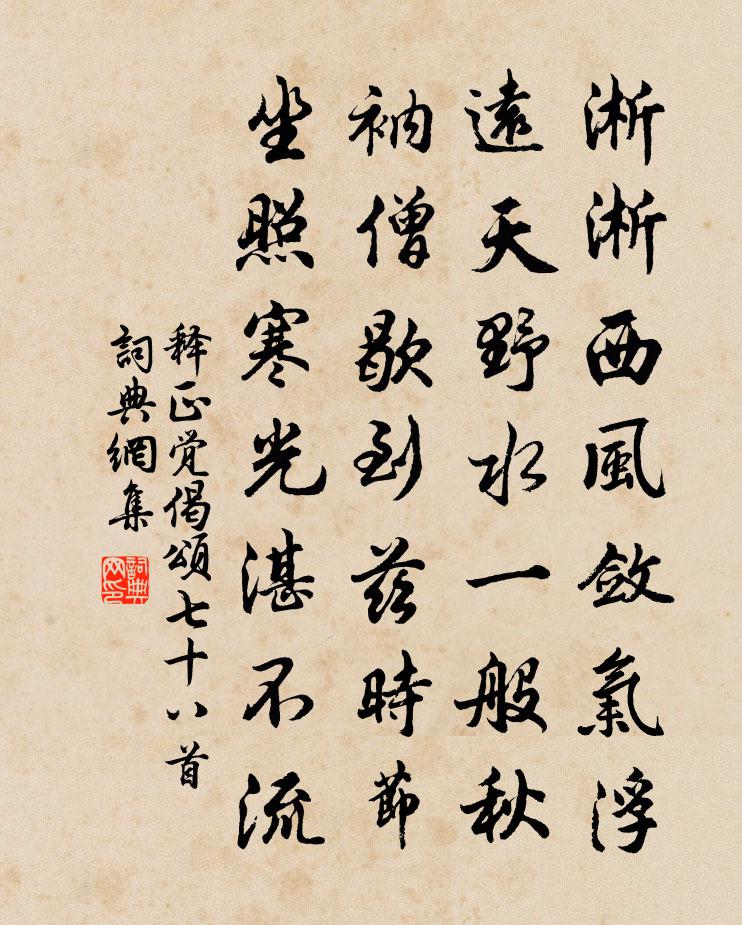 淅淅西風斂氣浮
遠天野水一般秋
衲僧歇到茲時節
坐照寒光湛不流
释正觉偈頌七十八首
詞典網集
詞典网印